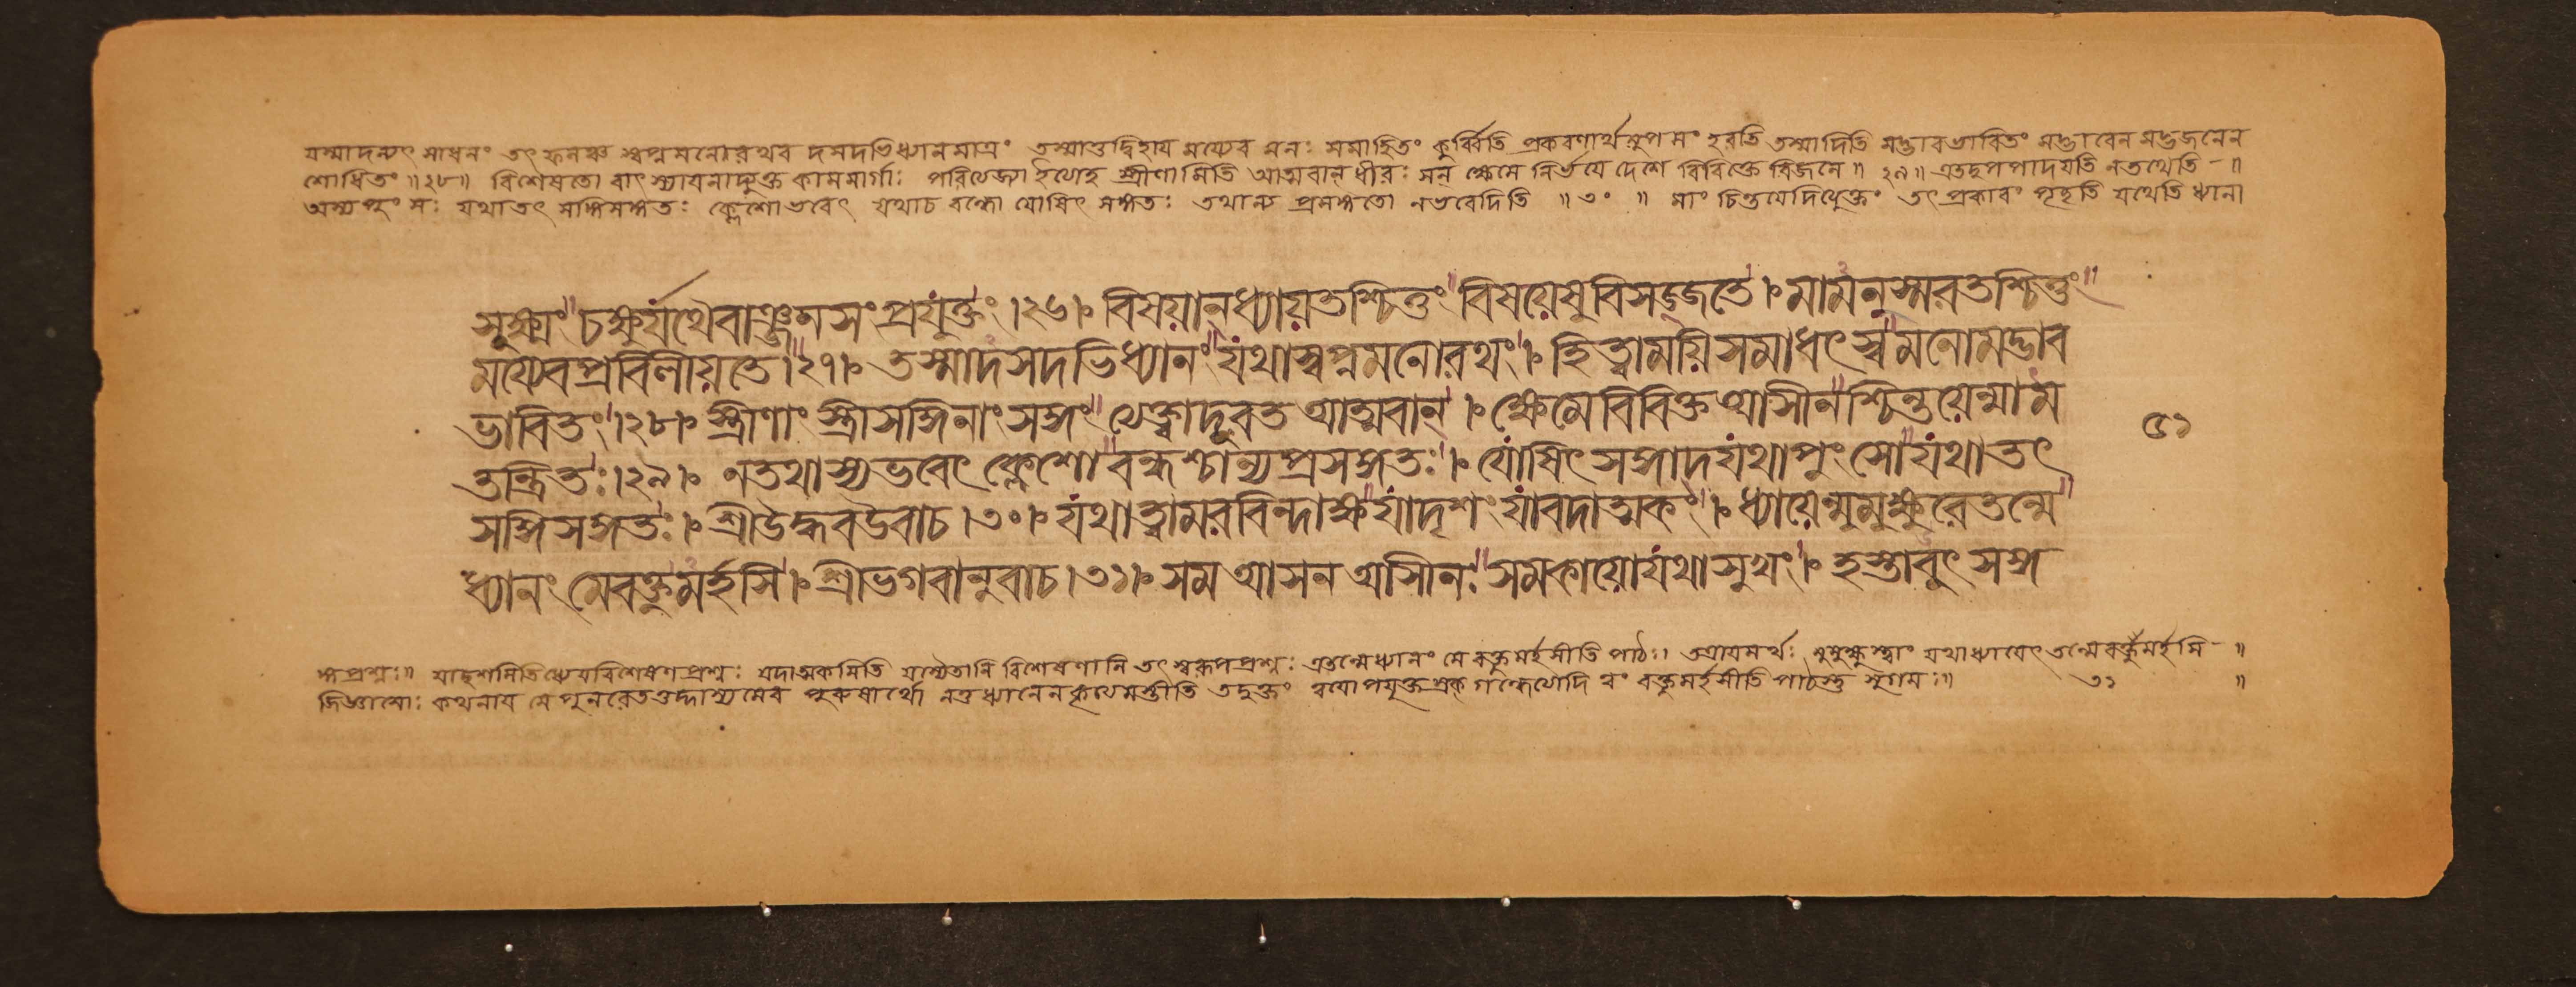 যস্মাদন্যৎ সাধনং তৎ ফলঞ্চ স্বপ্নমনোরথব দসদভিধ্যানমাত্রং তস্মাত্তদ্বিহায় ময্যেব মনঃ সমাহিতং কুর্ব্বিতি প্রকরণার্থমুপসং হরতি তস্মাদিতি মদ্ভাবভাবিতং মদ্ভাবেন মদ্ভজনেন
শোধিতং ॥২৮॥ বিশেষতো বাৎস্যায়নাদ্যুক্ত কামমার্গাঃ পরিত্যেজ্যা ইত্যেহ স্ত্রীণামিতি আত্মবান্ ধীরঃ সন্ ক্ষেমে নির্ভয়ে দেশে বিবিক্তে বিজনে॥ ২৯॥ এতদুপপাদয়তি নতথেতি ॥
অস্য পুং সঃ যথাতৎ সঙ্গিসঙ্গতঃ ক্লেশোভবেৎ যথাচ বন্ধো যোষিৎ সঙ্গতঃ তথান্য প্রসঙ্গতো নভবেদিতি ॥৩০॥ মাং চিন্তয়েদিত্যুক্তং তৎ প্রকারং পৃচ্ছতি যথেতি ধ্যানা
সূক্ষ্মং চক্ষুর্যথৈবাঞ্জনসংপ্রযুক্তং।২৬। বিষয়ান্ ধ্যায়তশ্চিত্তং বিষয়েষু বিসজ্জতে। মামনুস্মরতশ্চিত্তং
ময্যেবপ্রবিলীয়তে।২৭। তস্মাদসদভিধ্যানং যথাস্বপ্নমনোরথং। হিত্বাময়িসমাধৎস্ব মনোমদ্ভাব
ভাবিতং।২৮। স্ত্রীণাং স্ত্রীসঙ্গিনাং সঙ্গং ত্যেক্ত্বাদূরত আত্মবান্। ক্ষেমেবিবিক্ত আসীনশ্চিন্তয়েন্মাম
তন্দ্রিতঃ।২৯। নতথাস্যভবেৎ ক্লেশো বন্ধশ্চান্যপ্রসঙ্গতঃ। যোষিৎ সঙ্গাদযথাপুংসো যথাতৎ
সঙ্গিসঙ্গতঃ। শ্রীউদ্ধবউবাচ।৩০। যথাত্বামরবিন্দাক্ষ যাদৃশং যাবদাত্মকং। ধ্যায়েন্মুমুক্ষুরেতন্মে
ধ্যানং মেবক্তুমর্হসি। শ্রীভগবানুবাচ।৩১। সম আসন আসীনঃ সমকায়োযথাসুখং। হস্তাবুৎসঙ্গ
৫১
ঙ্গপ্রশ্নঃ॥ যাদৃশমিতিধ্যেয়বিশেষণপ্রশ্নঃ যদাত্মকমিতি যস্যৈতানি বিশেষণানি তৎ স্বরূপপ্রশ্নঃ এতন্মেধ্যানং মে বক্তুমর্হসীতি পাঠঃ। তত্রায়মর্থঃ মুমুক্ষুস্ত্বাং যথাধ্যায়েৎ তন্মেবক্তুমর্হসি ॥
জিজ্ঞাসোঃ কথনায় মে পুনরেতত্তদ্দাস্যমেব পুরুষার্থো নত্রধ্যানেনকৃত্যেমস্তীতি তদুক্তং বক্তুমর্হসীতি পাঠস্তু সুগমঃ॥ ৩১ ॥